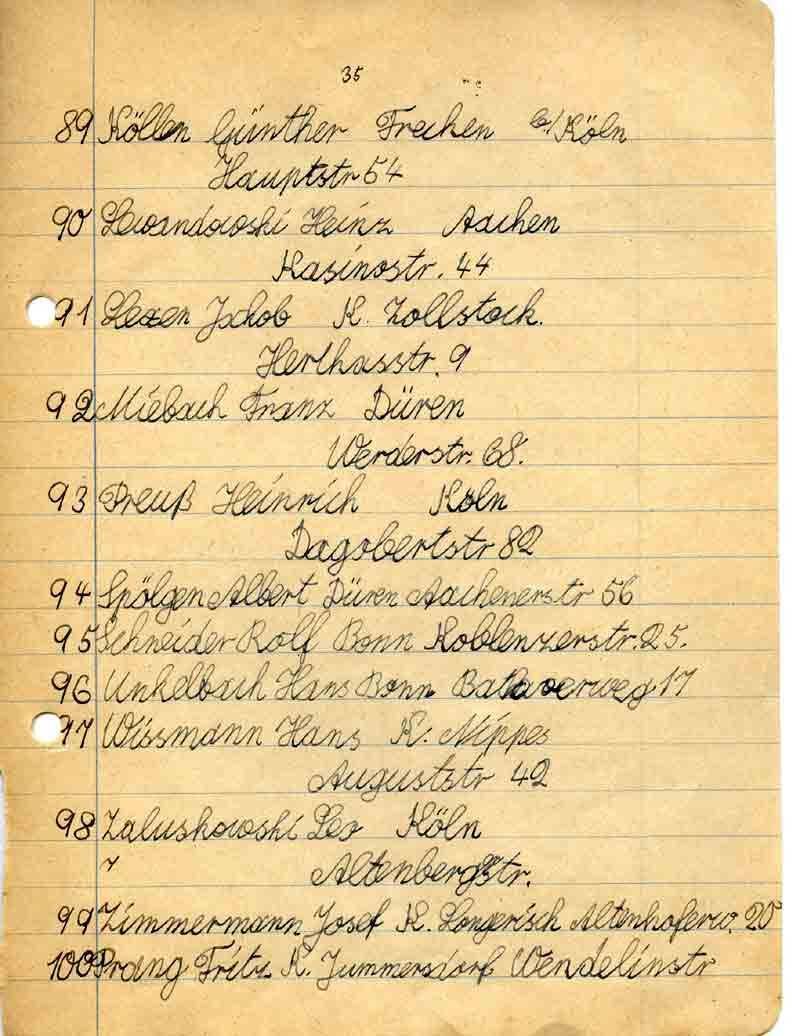 35
89 Köllen Günther Frechen b/Köln
Hauptstr 54
90 Lewandowski Heinz Aachen
Kasinostr. 44
91 Lexen Jakob K. Zollstock.
Herthasstr. 9
92 Miebach Franz Düren
Werderstr. 68.
93 Preuß Heinrich Köln
Dagobertstr 82
94 Spölgen Albert Düren Aachenerstr 56
95 Schneider Rolf Bonn Koblenzerstr. 25.
96 Unkelbach Hans Bonn 17
97 Wissmann Hans K. Nippes
Auguststr 42
98 Zaluskowski Leo Köln
Altenbergstr.
99 Zimmermann Josef K. Longerisch Altenhoferw. 20
100 Prang Fritz K. Jummersdorf Wendelinstr